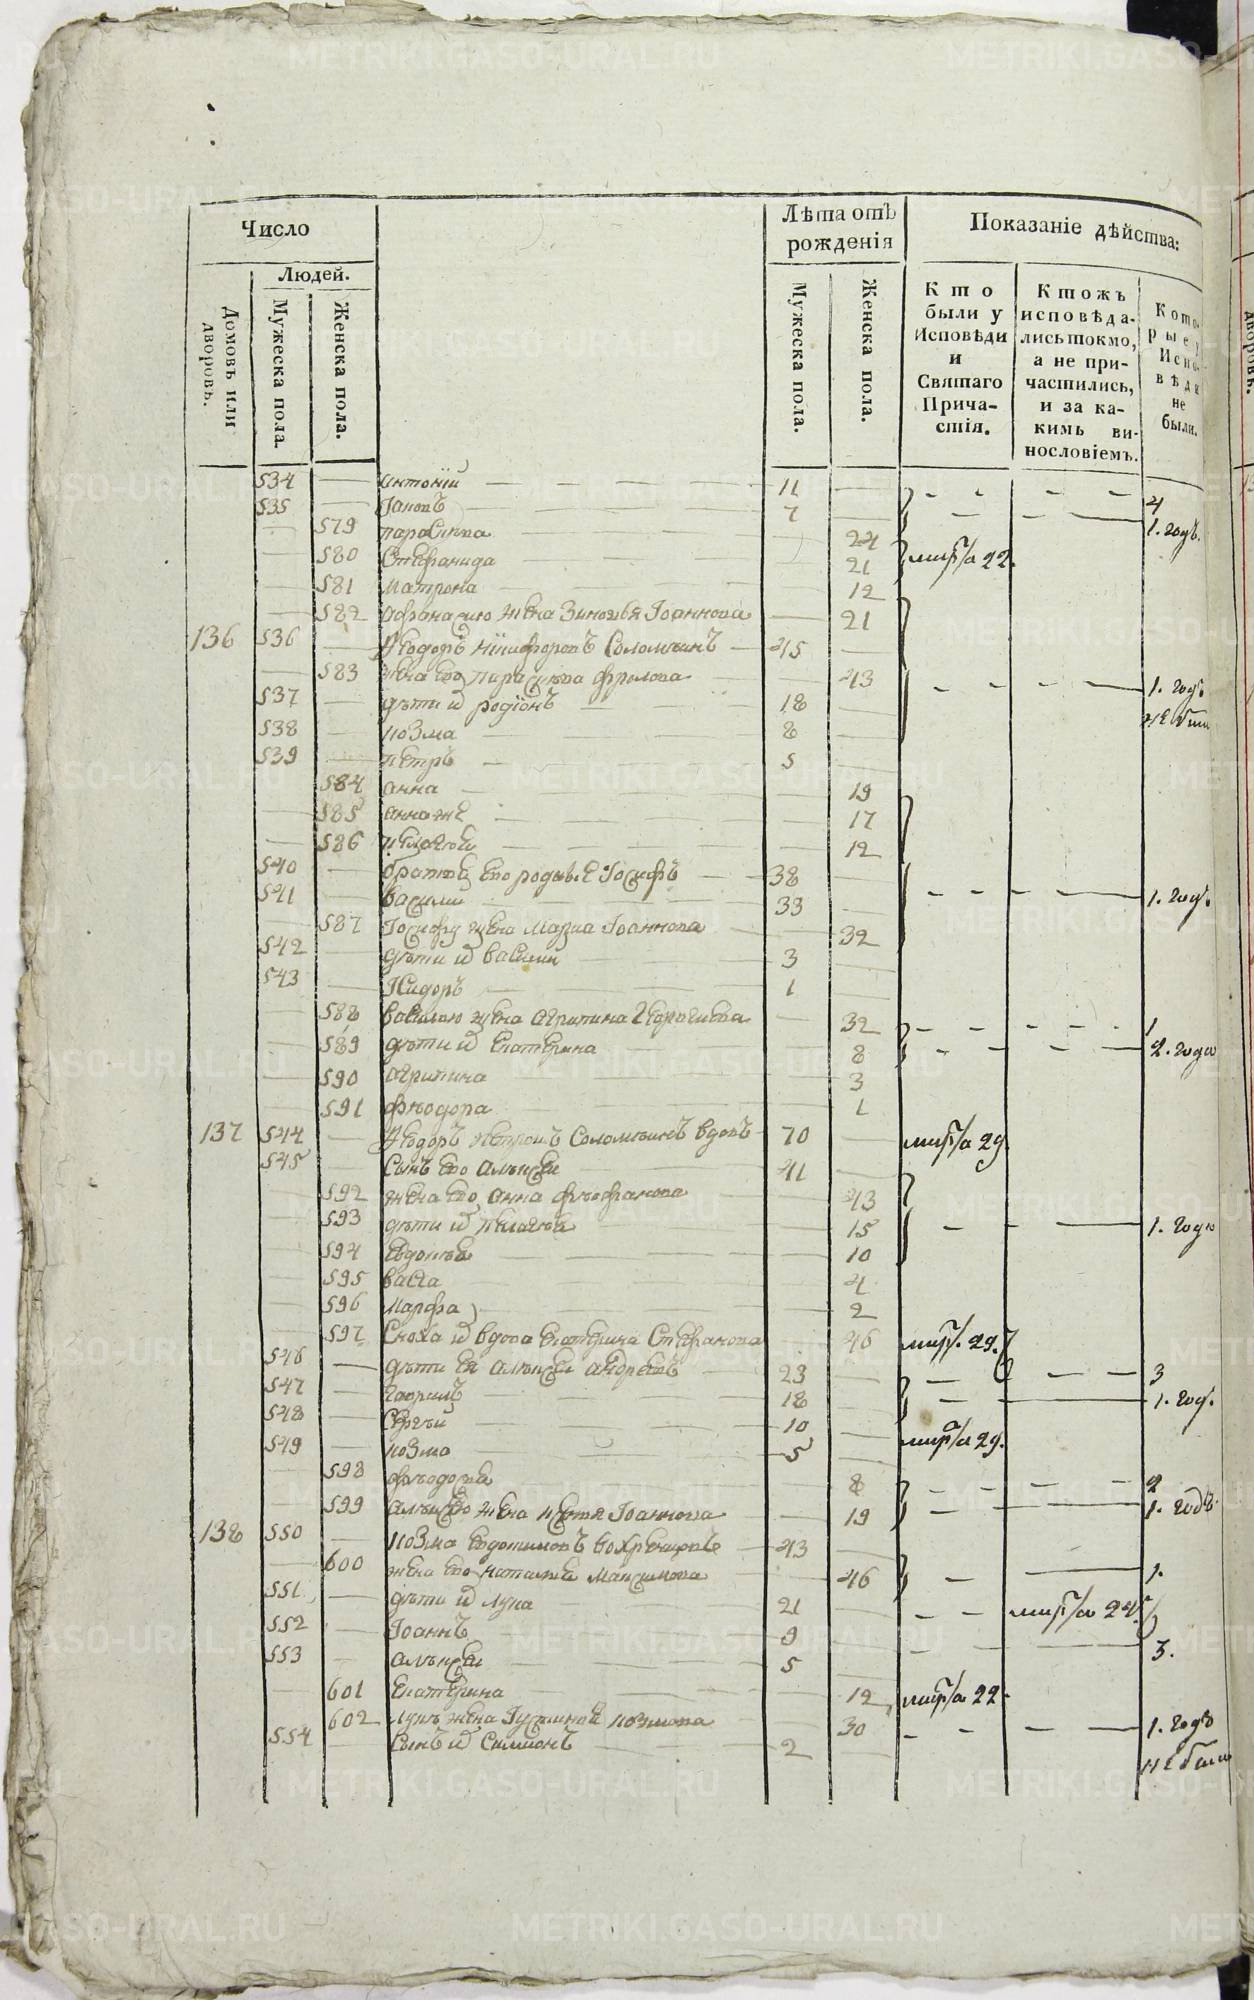 Число
Людей.
Домовъ или дворовъ.
Мужеска пола.
Женска пола.
Лѣта отъ рожденія
Мужеска пола.
Женска пола.
Показаніе дѣйства:
Кто были у Исповѣди и Святаго Причастія.
Ктожъ исповѣдались токмо, а не причастились, и за какимъ винословіемъ.
Которые у Исповѣди не были.
534 Антоній 11
535 Іаковъ 7 4
579 Параскева 24 1. годъ.
580 Стефанида 21 22.
581 Матрона 12
582 Афонасию жена Зиновья Іоаннова 21
136 536 Ѳеодоръ Никифоровъ Соломеинъ 45
583 жена его Параскева Фролова 43 1. годъ
537 дѣти их Родіонъ 18 не были
538 Козма 8
539 Петръ 5
584 Анна 19
585 Анна же 17
586 Пелагея 12
540 братья его родные Іосифъ 38
541 Василий 33 1. годъ.
587 Іосифу жена Мариа Іоаннова 32
542 дѣти их Василий 3
543 Исидоръ 1
588 Василью жена Агрипина Георгиева 32 1
589 дѣти их Екатерина 8 2. года
590 Агрипина 3
591 Феодора 1
137 544 Ѳеодоръ Петровъ Соломеинъ вдовъ 70 29.
545 Сынъ его Алексей 41
592 жена его Анна Феофанова 43
593 дѣти их Пелагея 15 1. годъ
594 Евдокея 10
595 Васса 4
596 Марфа 2
597 Сноха их вдова Екатерина Стефанова 46 29.
546 дѣти ея Алексей Андреевъ 23 3
547 Гаврилъ 18 1. годъ.
548 Сергей 10 29.
549 Козма 5
598 Феодосия 8 2
599 Алексею жена Іоаннова 19 1. годъ
138 550 Козма Евдокимовъ Вохренцовъ 43
600 жена его Наталья Максимова 46 1.
551 дѣти их Лука 21 24
552 Іоаннъ 9
553 Алексей 5 3.
601 Екатерина 12 22
602 Луке жена Іустиния Козмина 30 1. годъ
554 Сынъ их Симионъ 2 не были
METRIKI.GASO-URAL.RU